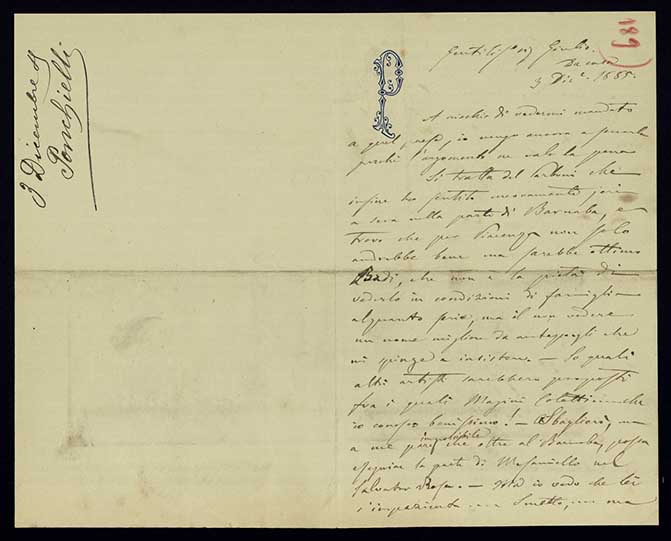 3 Dicembre 85
Ponchielli
189
P
Gentilo Sig Giulio.
Da casa
3 Dice. 1885.
A rischio di vedermi mandato
a quel paese, io vengo ancora a
perchè l'argomento ne vale la pena
Si tratta del Carboni che
infine ho sentito nuovamente jeri
a sera nella parte di Barnaba, e
trovo che per Piacenza non solo
andrebbe bene ma sarebbe ottimo
Badi, che non è la pietà di
vederlo in condizioni di famiglia
alquanto serie, ma il non vedere
un nome migliore da che
mi spinge a insistere. — So quali
altri artisti sarebbero proposti
fra i quali Magini Coletti che
io conosco benissimo! — Sbaglierò, ma
a me pare impossibile che oltre al Barnaba, possa
eseguire la parte di Masaniello nel
Salvator Rosa. — Ma io vedo che lei
s'impazienta ma smetto, ma